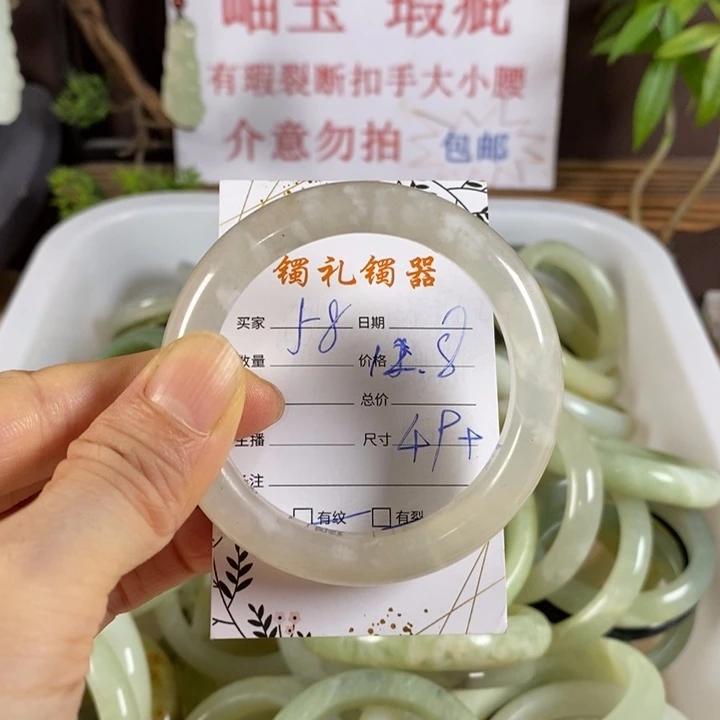 岫玉 瑕疵
有瑕裂断扣手大小腰
介意勿拍 包邮
镯礼镯器
买家 58 日期
数量 价格 12.8
总价
主播 尺寸 4P+
备注
有纹 有裂